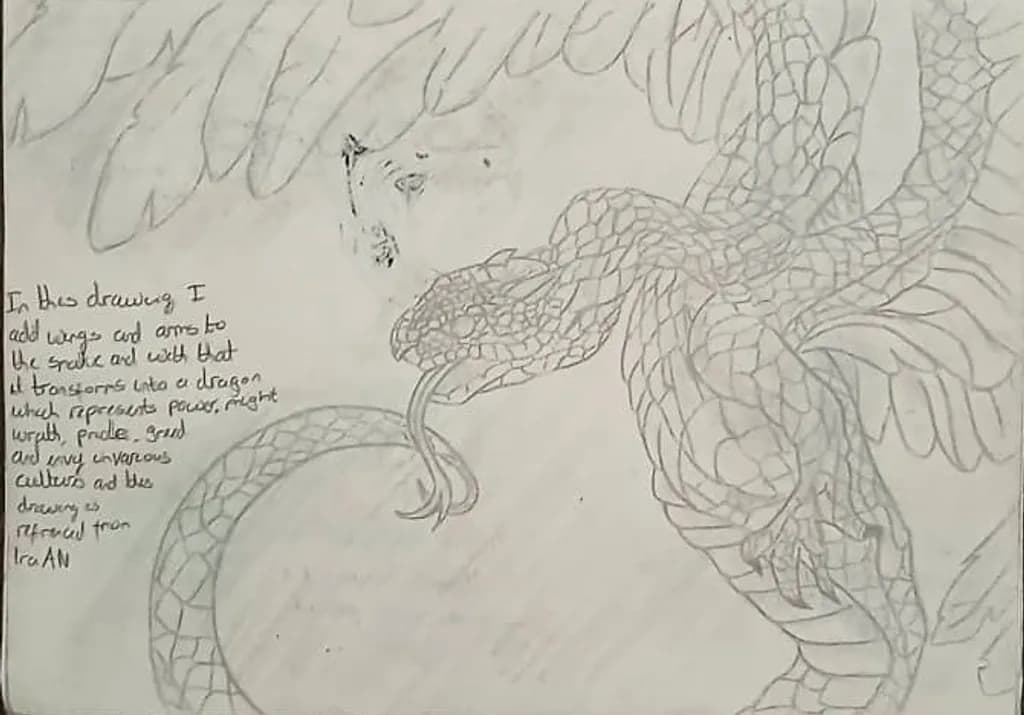 In this drawing I
add wings and arms to
the snake and with that
it transforms into a dragon
which represents power, might
wrath, pride, greed
and envy in various
cultures and this
drawing is
refrenced from
IraAN